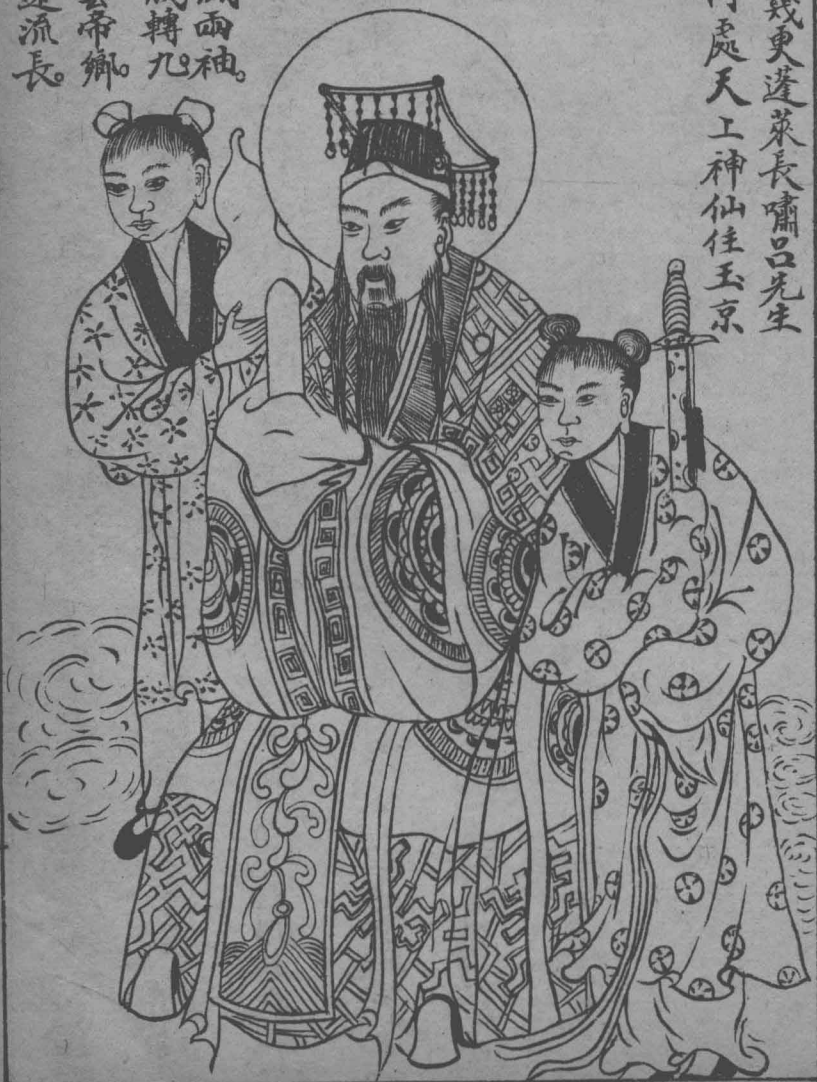 幾更蓬萊長嘯呂先生
處天上神仙住玉京
兩袖。
轉九。
帝鄉。
流長。